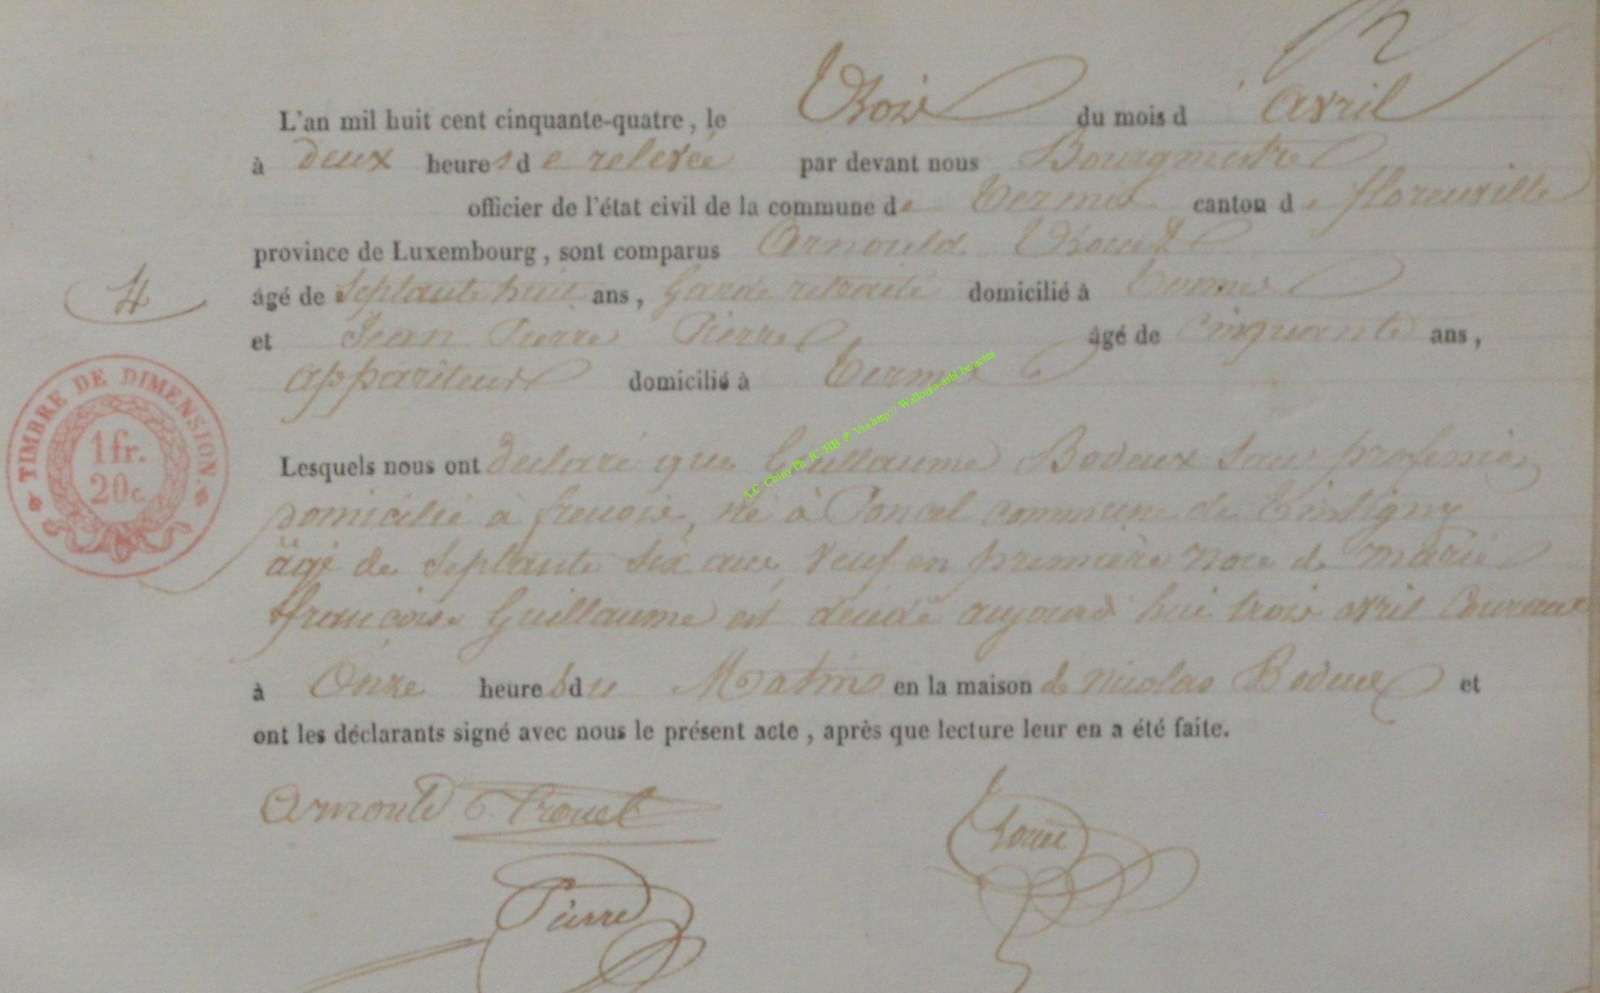 L'an mil huit cent cinquante-quatre, le Trois du mois d'avril
à deux heures de relevée par devant nous Bourgmestre
officier de l'état civil de la commune de Termes canton de florenville
province de Luxembourg, sont comparus Arnould Trouet
âgé de Septante huit ans, Garde retraité domicilié à Termes
4
et Jean Pierre Pierre âgé de Cinquante ans,
appariteur domicilié à Termes
TIMBRE DE DIMENSION.
1 fr.
20 c
Lesquels nous ont declaré que Guillaume Bodeux sans profession
Domicilié à frenois, né à Poncel commune de Tintigny
âgé de Septante six ans, Veuf en première noce de marie
françoise Guillaume est décédé aujourd'hui trois avril Courant
à Onze heures du Matin en la maison de nicolas Bodeux et
ont les déclarants signé avec nous le présent acte, après que lecture leur en a été faite.
Arnould Trouet
Pierre